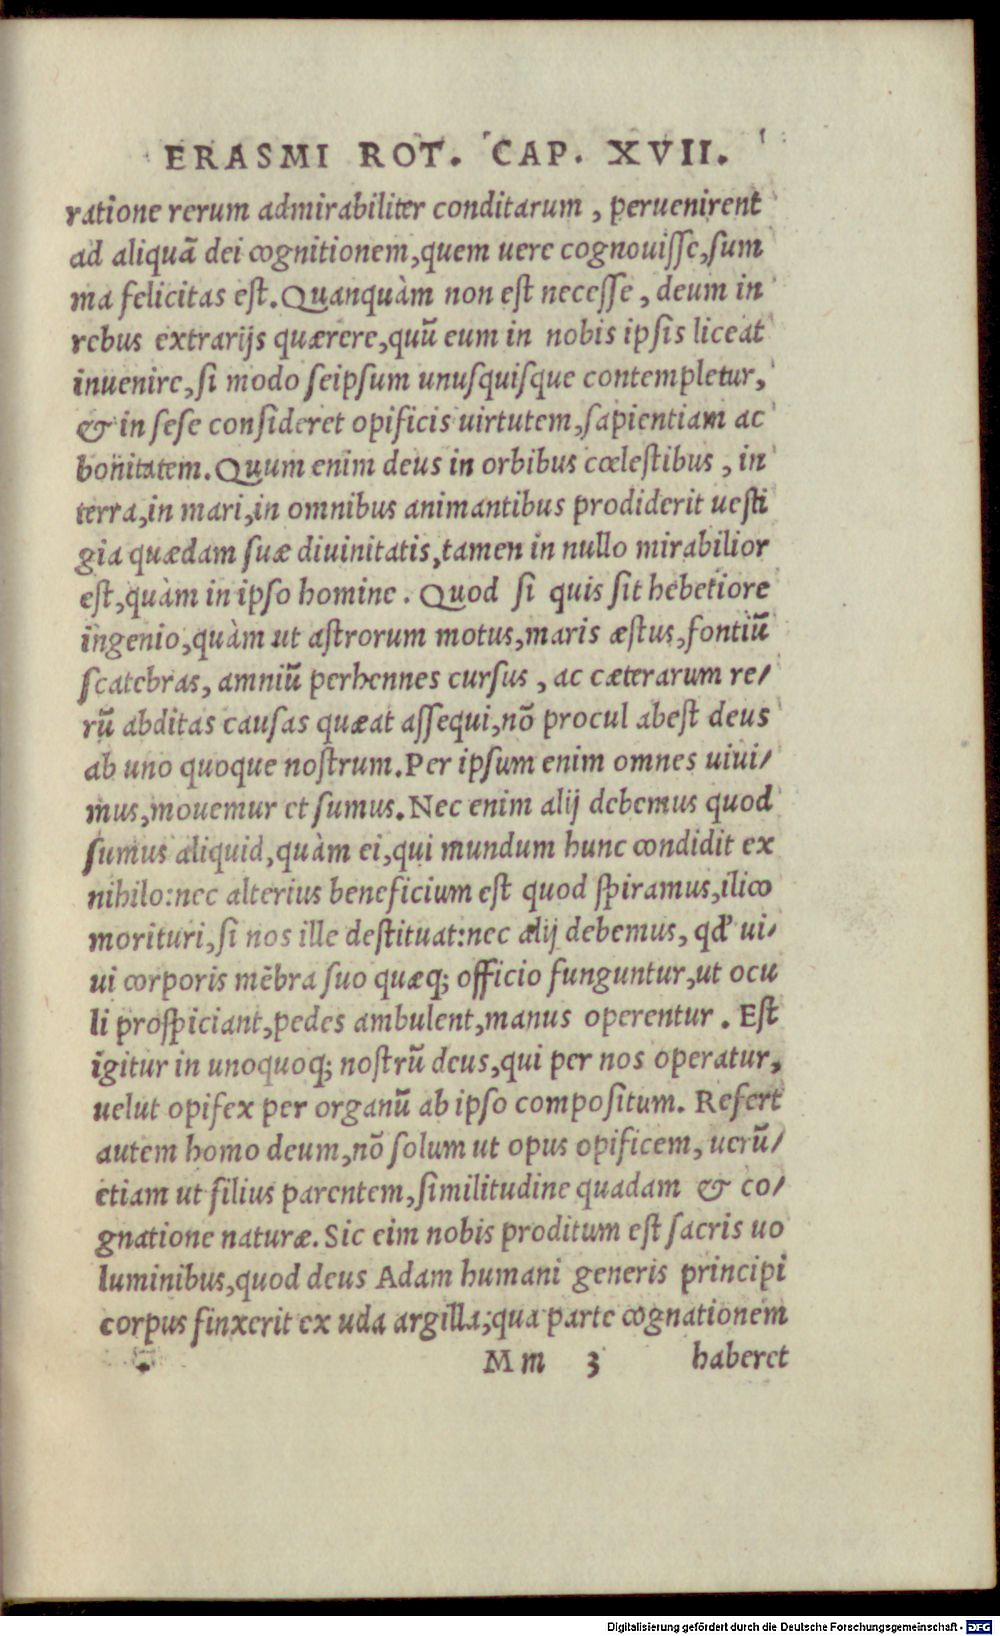 ERASMI ROT. CAP. XVII.
ratione rerum admirabiliter conditarum, peruenirent
ad aliquā dei cognitionem, quem uere cognouiſſe, ſum
ma felicitas eſt. Quanquàm non eſt neceſſe, deum in
rebus extrarijs quærere, quū eum in nobis ipſis liceat
inuenire, ſi modo ſeipſum unuſquiſque contempletur,
& in ſeſe conſideret opificis uirtutem, ſapientiam ac
bonitatem. Quum enim deus in orbibus cœleſtibus, in
terra, in mari, in omnibus animantibus prodiderit ueſti
gia quædam ſuæ diuinitatis, tamen in nullo mirabilior
eſt, quàm in ipſo homine. Quod ſi quis ſit hebetiore
ingenio, quàm ut aſtrorum motus, maris æſtus, fontiū
ſcatebras, amniū perhennes curſus, ac cæterarum re/
rū abditas cauſas quæat aſſequi, nō procul abeſt deus
ab uno quoque noſtrum. Per ipſum enim omnes uiui/
mus, mouemur et ſumus. Nec enim alij debemus quod
ſumus aliquid, quàm ei, qui mundum hunc condidit ex
nihilo: nec alterius beneficium eſt quod ſpiramus, ilico
morituri, ſi nos ille deſtituat: nec alij debemus, qđ ui/
ui corporis mēbra ſuo quæq; officio funguntur, ut ocu
li proſpiciant, pedes ambulent, manus operentur. Eſt
igitur in unoquoq; noſtrū deus, qui per nos operatur,
uelut opifex per organū ab ipſo compoſitum. Refert
autem homo deum, nō ſolum ut opus opificem, uerū/
etiam ut filius parentem, ſimilitudine quadam & co/
gnatione naturæ. Sic eim nobis proditum eſt ſacris uo
luminibus, quod deus Adam humani generis principi
corpus finxerit ex uda argilla; qua parte cognationem
Mm 3 haberet
Digitalisierung gefördert durch die Deutsche Forschungsgemeinschaft - DFG